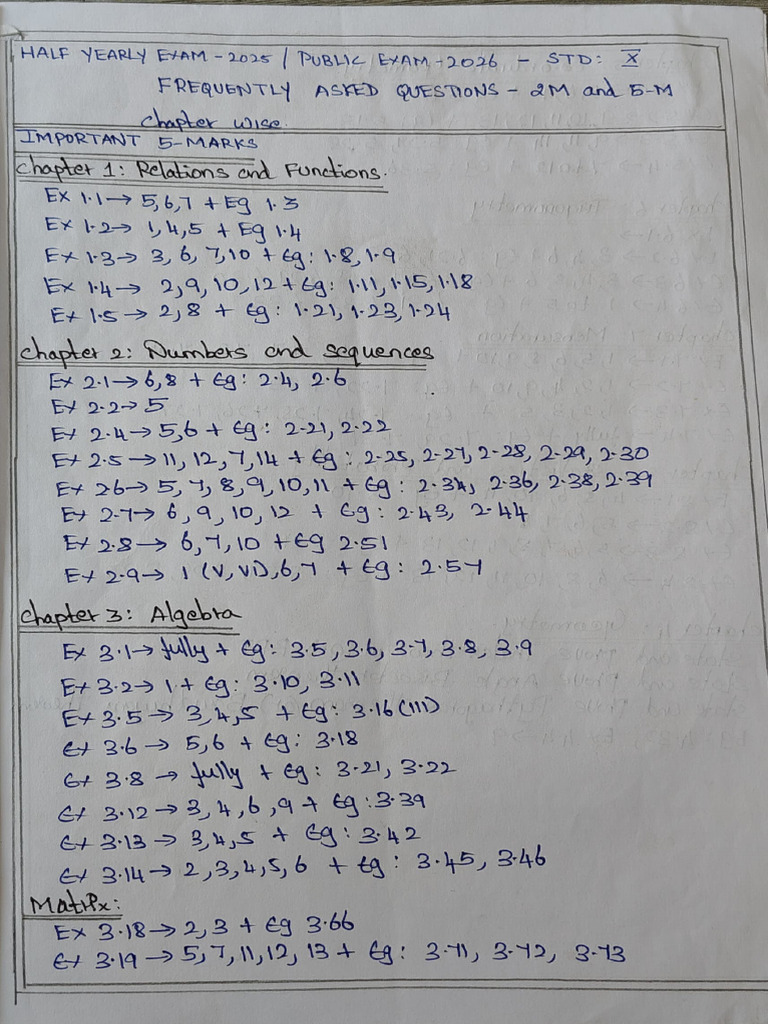 HALF YEARLY EXAM - 2025 / PUBLIC EXAM - 2026 - STD: X
FREQUENTLY ASKED QUESTIONS - 2M and 5-M
chapter wise.
IMPORTANT 5-MARKS
Chapter 1: Relations and Functions.
Ex 1.1 → 5,6,7 + Eg 1.3
Ex 1.2 → 1,4,5 + Eg 1.4
Ex 1.3 → 3, 6, 7, 10 + Eg: 1.8, 1.9
Ex 1.4 → 2, 9, 10, 12 + Eg: 1.11, 1.15, 1.18
Ex 1.5 → 2, 8 + Eg: 1.21, 1.23, 1.24
Chapter 2: Numbers and sequences
Ex 2.1 → 6, 8 + Eg: 2.4, 2.6
Ex 2.2 → 5
Ex 2.4 → 5,6 + Eg: 2.21, 2.22
Ex 2.5 → 11, 12, 7, 14 + Eg: 2.25, 2.27, 2.28, 2.29, 2.30
Ex 2.6 → 5, 7, 8, 9, 10, 11 + Eg: 2.34, 2.36, 2.38, 2.39
Ex 2.7 → 6, 9, 10, 12 + Eg: 2.43, 2.44
Ex 2.8 → 6, 7, 10 + Eg 2.51
Ex 2.9 → 1 (v, vi), 6, 7 + Eg: 2.57
Chapter 3: Algebra
Ex 3.1 → fully + Eg: 3.5, 3.6, 3.7, 3.8, 3.9
Ex 3.2 → 1 + Eg: 3.10, 3.11
Ex 3.5 → 3, 4, 5 + Eg: 3.16 (III)
Ex 3.6 → 5, 6 + Eg: 3.18
Ex 3.8 → fully + Eg: 3.21, 3.22
Ex 3.12 → 3, 4, 6, 9 + Eg: 3.39
Ex 3.13 → 3, 4, 5 + Eg: 3.42
Ex 3.14 → 2, 3, 4, 5, 6 + Eg: 3.45, 3.46
Matrix:
Ex 3.18 → 2, 3 + Eg 3.66
Ex 3.19 → 5, 7, 11, 12, 13 + Eg: 3.71, 3.72, 3.73